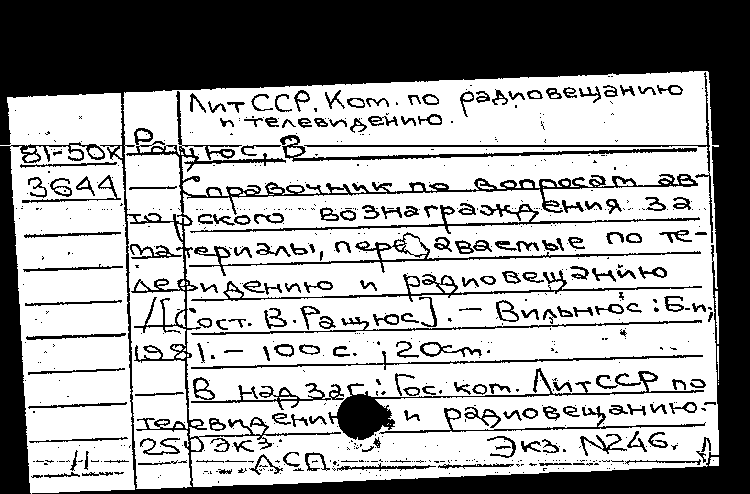 ЛитССР. Ком. по радиовещанию
и телевидению.
81-50к Ращюс, В.
3644 Справочник по вопросам ав-
торского вознаграждения за
материалы, передаваемые по те-
левидению и радиовещанию
/[Сост. В. Ращюс]. – Вильнюс : Б.и.,
1981. – 100 с. ; 20 см.
В надзаг.: Гос. ком. ЛитССР по
телевидению и радиовещанию. –
250 экз. Экз. N246.
ДСП.